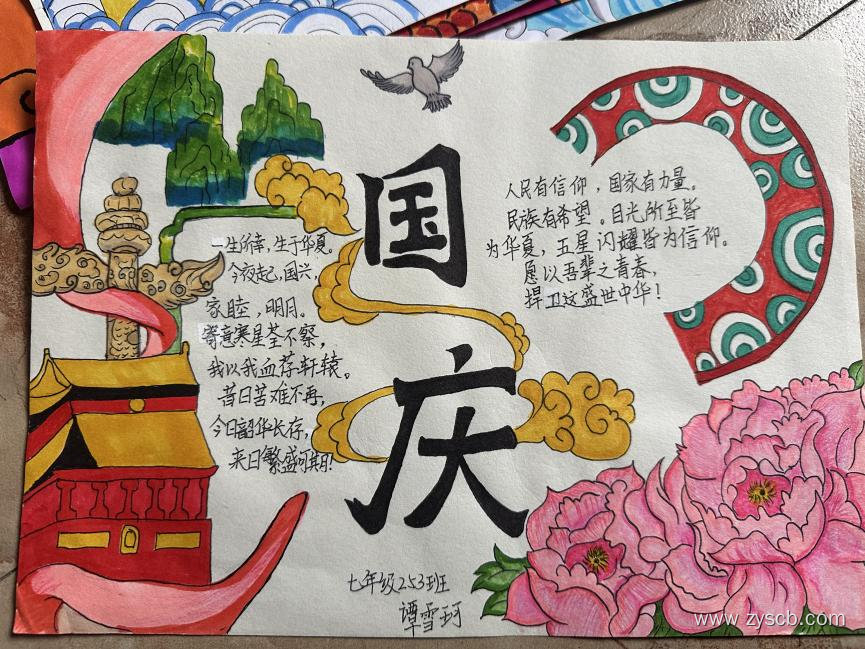 国
庆
一生所幸,生于华夏。
今夜起,国兴,
家睦,明月。
寄意寒星荃不察,
我以我血荐轩辕。
昔日苦难不再,
今日韶华长存,
来日繁盛可期!
人民有信仰,国家有力量。
民族有希望。目光所至皆
为华夏,五星闪耀皆为信仰。
愿以吾辈之青春,
捍卫这盛世中华!
七年级253班
谭雪珂
www.zyscb.com